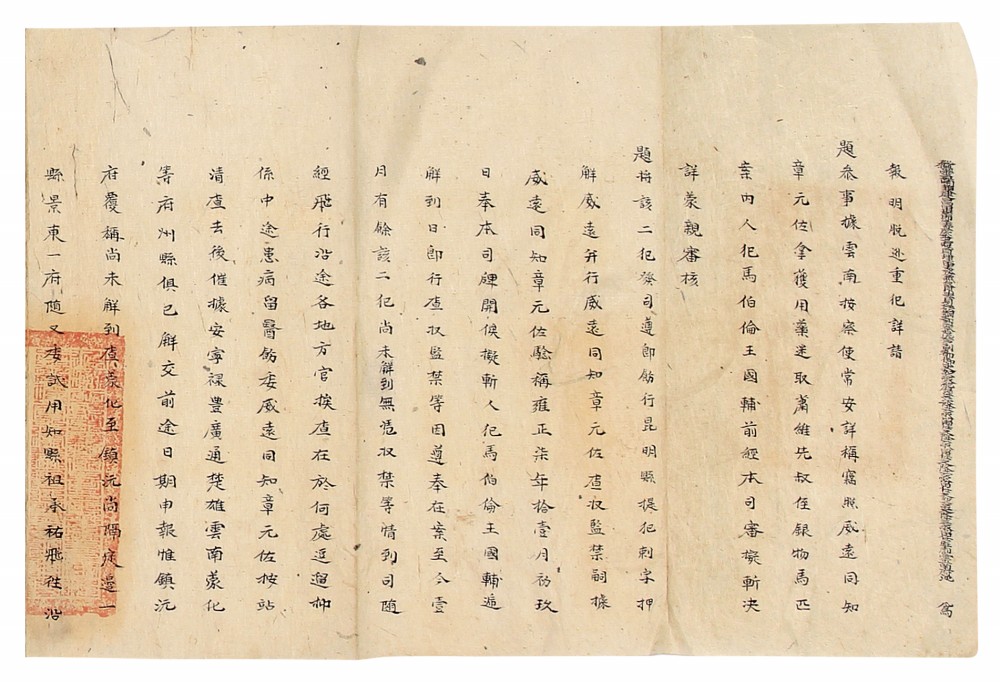 為
報明脫逃重犯詳請
題參事據雲南按察使常安詳稱竊照威遠同知
章元佐拿獲用藥迷取肅維先叔侄銀物馬匹
案內人犯馬伯倫王國輔前經本司審擬斬决
詳蒙親審核
題將該二犯發司遵即飭行昆明縣提犯刺字押
解威遠并行威遠同知章元佐查收監禁嗣據
威遠同知章元佐驗稱雍正柒年拾壹月初玖
日奉本司牌開候擬斬人犯馬伯倫王國輔遞
解到日即行查收監禁等因遵奉在案至今壹
月有餘該二犯尚未解到無憑收禁等情到司隨
經飛行沿途各地方官挨查在於何處逗遛抑
係中途患病留醫飭委威遠同知章元佐按站
清查去後催據安寧祿豐廣通楚雄雲南蒙化
等府州縣俱已解交前途日期申報惟鎮沅
府覆稱尚未解到查蒙化至鎮沅尚隔定邊一
縣景東一府隨又委試用知縣祖承祐飛往沿